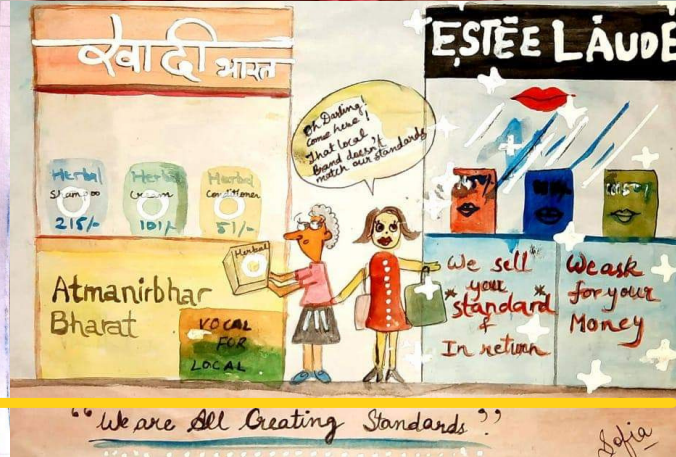 खादी भारत
ESTĒE LAUDE
Oh Darling!
Come here!
That local
Brand doesn't
match our standards
Herbal
Shampoo
215/-
Herbal
Cream
101/-
Herbal
Conditioner
51/-
Herbal
Atmanirbhar
Bharat
VOCAL
FOR
LOCAL
We sell
your
"standard"
&
In return
We ask
for your
Money
"We are All Creating Standards"
Sofia